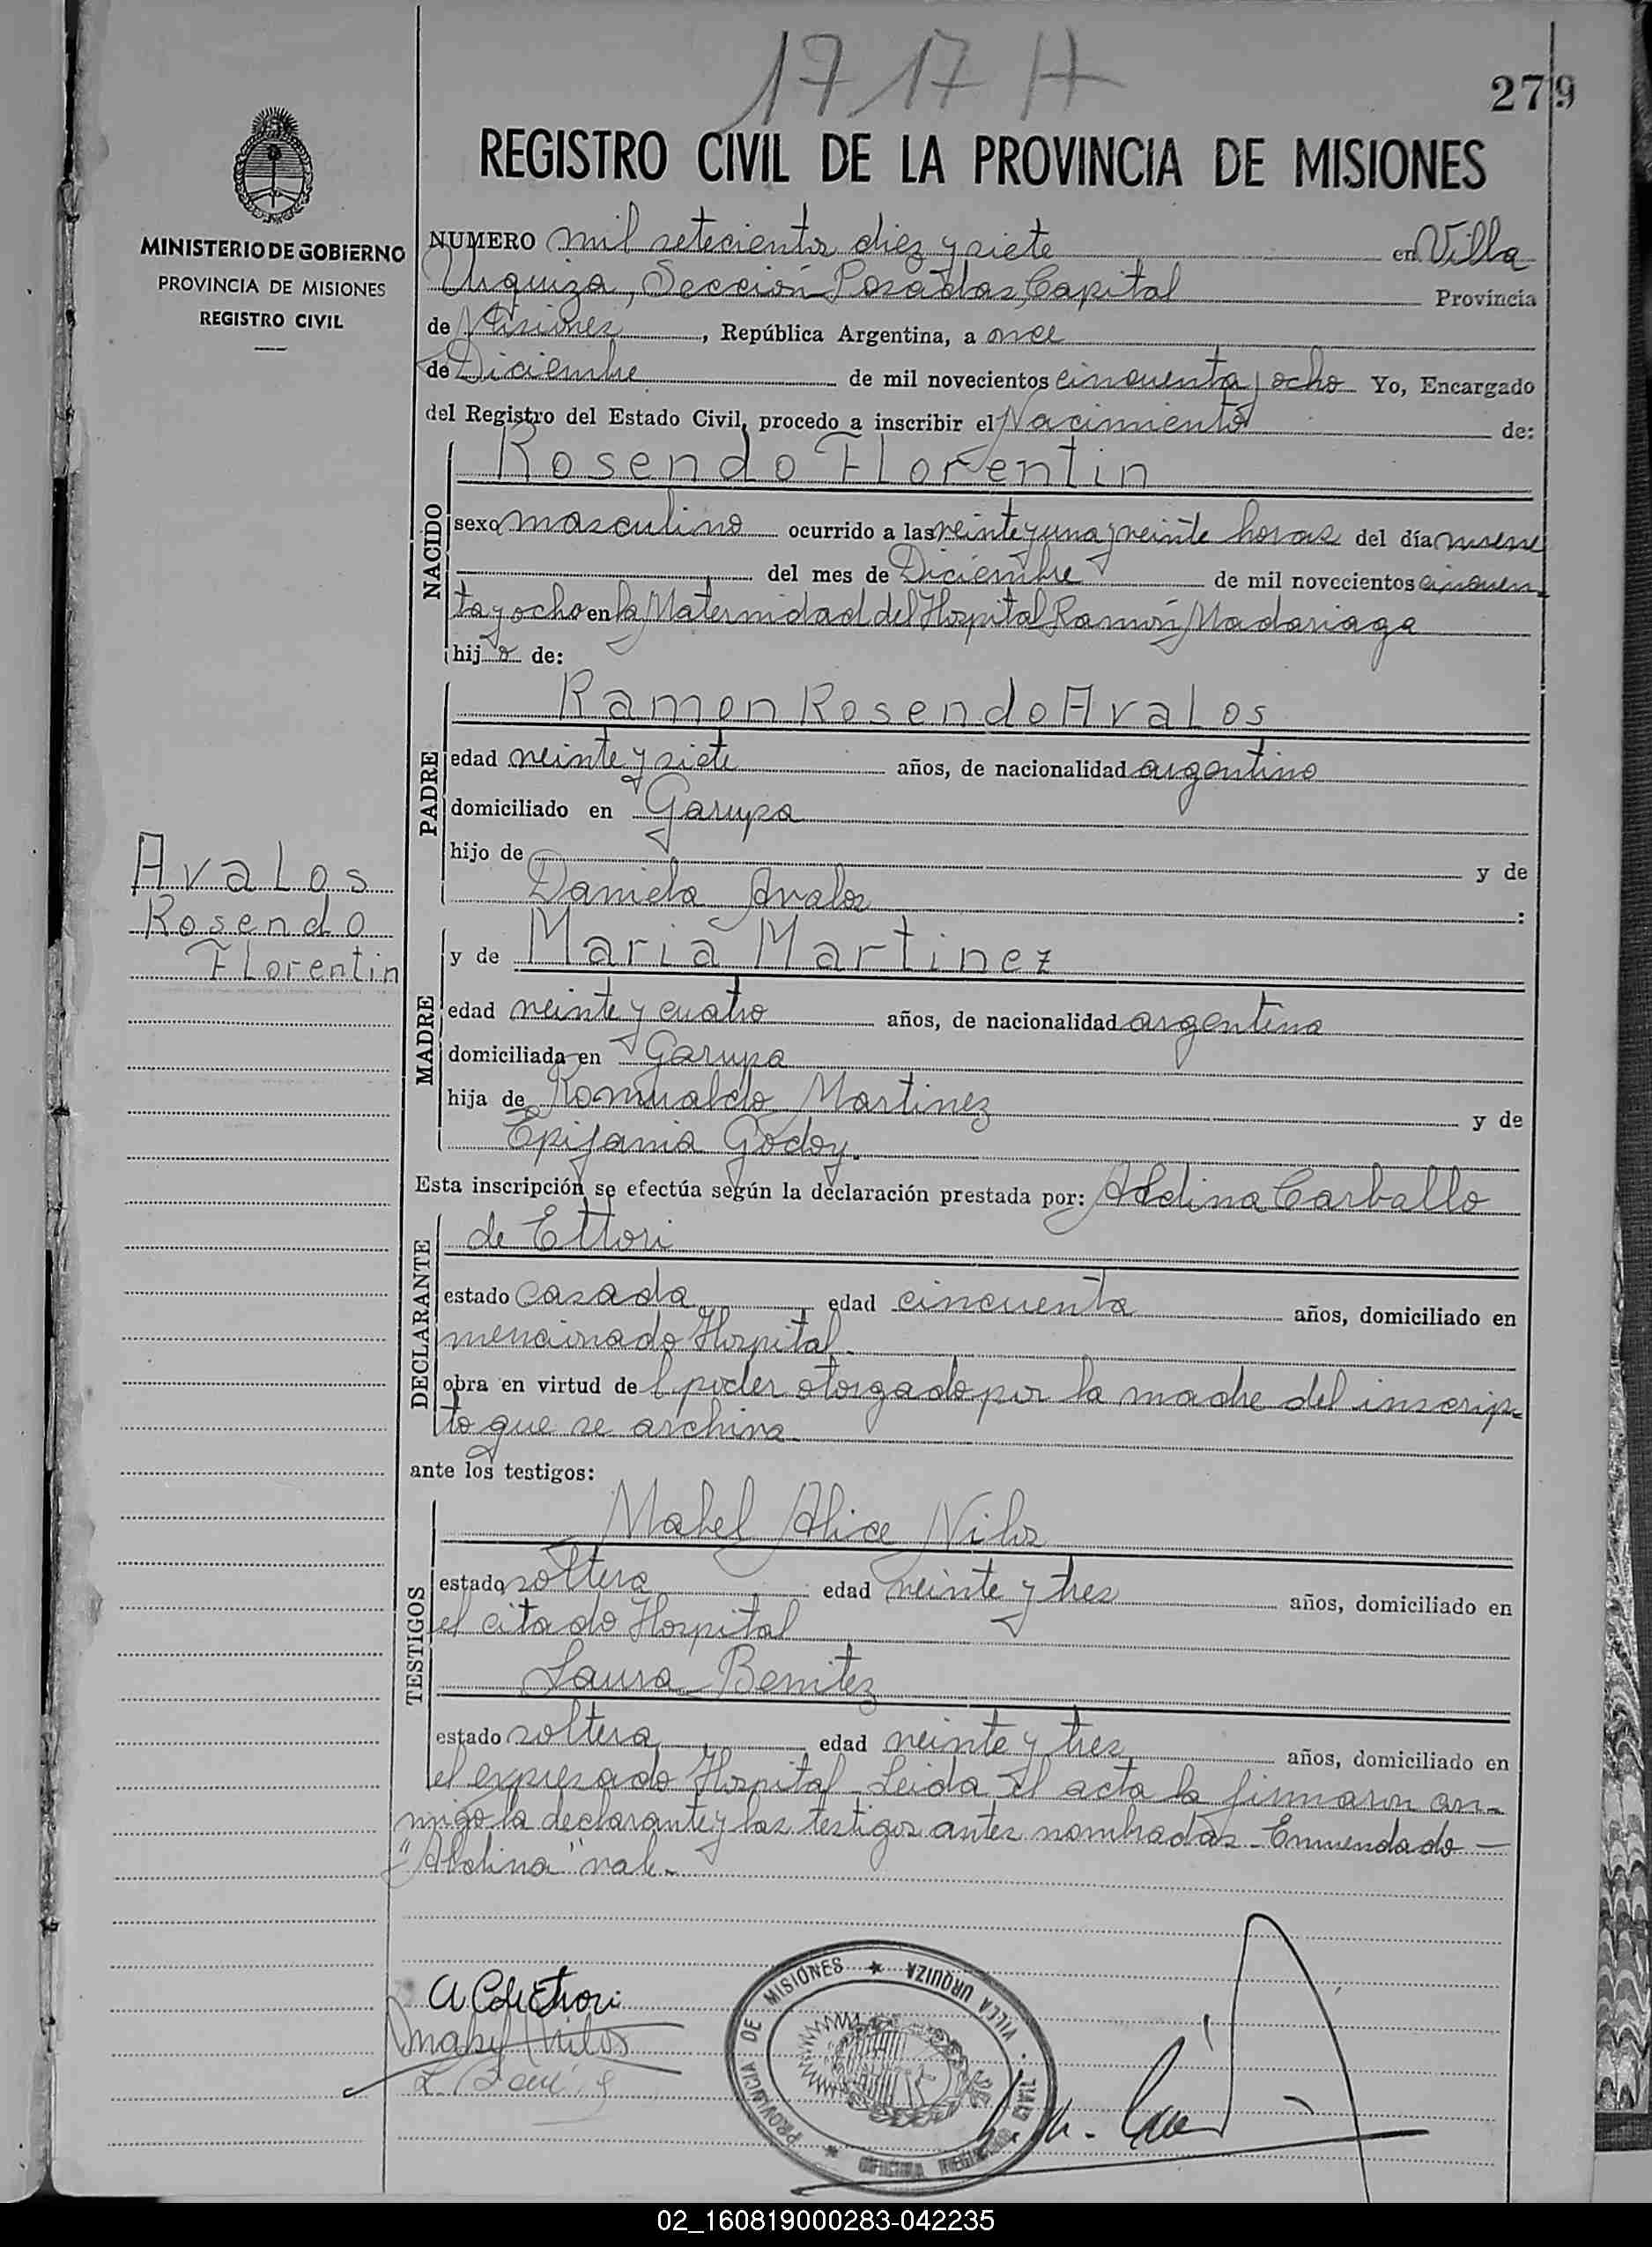 1717 H
279
REGISTRO CIVIL DE LA PROVINCIA DE MISIONES
MINISTERIO DE GOBIERNO
PROVINCIA DE MISIONES
REGISTRO CIVIL
NUMERO mil setecientos diez y siete en Villa
Urquiza, Sección Posadas, Capital Provincia
de Misiones, República Argentina, a once
de Diciembre de mil novecientos cincuenta y ocho Yo, Encargado
del Registro del Estado Civil, procedo a inscribir el Nacimiento de:
NACIDO
Rosendo Florentin
sexo masculino ocurrido a las veinte y una y veinte horas del día nueve
del mes de Diciembre de mil novecientos cincuen
ta y ocho en la Maternidad del Hospital Ramón Madariaga
hijo de:
PADRE
Ramon Rosendo Avalos
edad veinte y siete años, de nacionalidad argentino
domiciliado en Garupa
hijo de y de
Daniela Avalos :
Avalos
Rosendo
Florentin
MADRE
y de Maria Martinez
edad veinte y cuatro años, de nacionalidad argentina
domiciliada en Garupa
hija de Romualdo Martinez y de
Epifania Godoy.
Esta inscripción se efectúa según la declaración prestada por: Adelina Carballo
DECLARANTE
de Ettori
estado casada edad cincuenta años, domiciliado en
mencionado Hospital.
obra en virtud del poder otorgado por la madre del inscrip-
to que se archiva.
ante los testigos:
TESTIGOS
Mabel Alice Nilos
estado soltera edad veinte y tres años, domiciliado en
el citado Hospital
Laura Benitez
estado soltera edad veinte y tres años, domiciliado en
el expresado Hospital - Leida el acta la firmaron con-
migo la declarante y las testigos antes nombradas - Enmendado -
"Adelina" vale.-
A C de Ettori
Mabel Nilos
PROVINCIA DE MISIONES ★ VILLA URQUIZA
OFICINA REGISTRO CIVIL ★
02_160819000283-042235